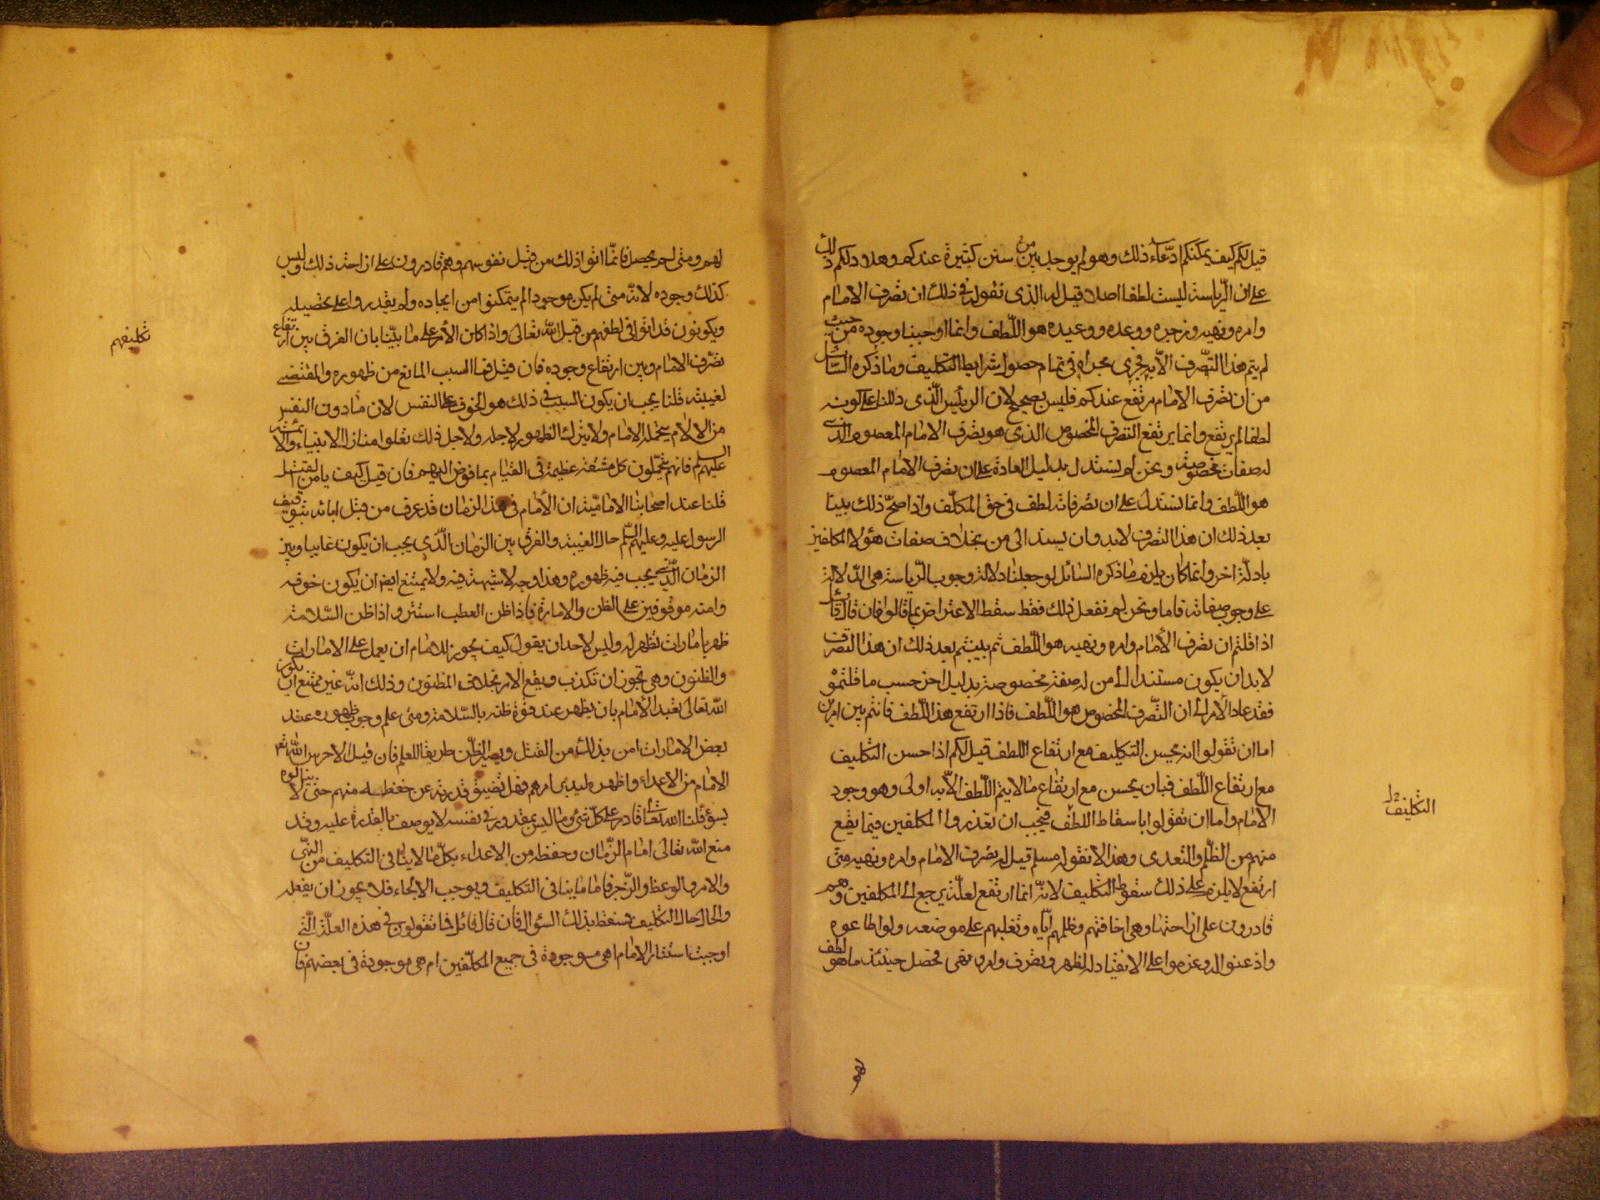 قيل لكم كيف يمكنكم ادعاء ذلك وهو لم يوجد من بين سنن كثيرة عندكم وهلا دلكم ذلك
على ان الرياسة ليست لطفا اصلا قيل له الذى نقوله فى ذلك ان تصرف الامام
وامره ونهيه وزجره ووعده ووعيده هو اللطف وانما اوجبنا وجوده من حيث
لم يتم هذا التصرف الا به فجرى مجراه فى تمام حصول شرايط التكليف وما ذكره السائل
من ان تصرف الامام مرتفع عندكم فليس بصحيح لان الرئيس الذى دللنا على كونه
لطفا لم يرتفع وانما يرتفع التصرف المخصوص الذى هو تصرف الامام المعصوم الذى
له صفات مخصوصة ونحن لم نستدل بدليل العادة على ان تصرف الامام المعصوم
هو اللطف وانما نستدل على ان تصرفاته لطف فى حق المكلف واذا صح ذلك بينا
بعد ذلك ان هذا التصرف لابد وان يستند الى من بخلاف صفات هؤلاء المكلفين
بادلة اخر وانما كان يلزم ما ذكره السائل لو جعلنا دلالة وجوب الرياسة هى الدلالة
على وجوب صفاته فاما ونحن لم نفعل ذلك فقط سقط الاعتراض بما قالوا فان قال قائل
اذا قلتم ان تصرف الامام وامره ونهيه هو اللطف ثم بينتم بعد ذلك ان هذا التصرف
لابد ان يكون مستندا الى من له صفة مخصوصة بدليل اخر حسب ما قلتموه
فقد عاد الامر الى ان التصرف المخصوص هو اللطف فاذا ارتفع هذا اللطف فانتم بين امرين
اما ان تقولوا انه يحسن التكليف مع ارتفاع اللطف قيل لكم اذا حسن التكليف
مع ارتفاع اللطف فبان يحسن مع ارتفاع ما لا يتم اللطف الا به اولى وهو وجود
الامام واما ان تقولوا باسقاط اللطف فيجب ان تعذروا المكلفين فيما يقع
منهم من الظلم والتعدى وهذا لا نقوله مسلم قيل له تصرف الامام وامره ونهيه متى
ارتفع لا يلزم على ذلك سقوط التكليف لانه انما ارتفع لعلة يرجع الى المكلفين وهم
قادرون على ازاحتها وهى اخافتهم وظلمهم اياه وتغلبهم على موضعه ولو اطاعوه
واذعنوا له وعزموا على الانقياد له لظهر وتصرف وامر ونهى فحصل حينئذ ما هو لطف
لهم
التكليف
لهم ومتى لم يحصل فانما اتوا ذلك من قبل نفوسهم وهم قادرون على ازاحة ذلك وليس
كذلك وجوده لانه متى لم يكن موجودا لم يتمكنوا من ايجاده ولم يقدروا على تحصيله
ويكونون قد اتوا فى لطفهم من قبل الله تعالى واذا كان الامر على ما بينا بان الفرق بين ارتفاع
تصرف الامام وبين ارتفاع وجوده فان قيل فما السبب المانع من ظهوره والمقتضى
لغيبته قلنا يجب ان يكون السبب فى ذلك هو الخوف على النفس لان ما دون النفس
من الالام يتحمله الامام ولا يترك الظهور لاجله ولاجل ذلك تعلوا منازل الانبياء والائمة
عليهم السلم فانهم يتحملون كل مشقة عظيمة فى القيام بما فوض اليهم فان قيل كيف يامن القتل
قلنا عند اصحابنا الامامية ان الامام فى هذا الزمان قد عرف من قبل ابائه بتوقيف
الرسول عليه وعليهم السلم حال الغيبة والفرق بين الزمان الذى يجب ان يكون غايبا وبين
الزمان الذى يجب فيه ظهوره وهذا وجه لا شبهة فيه ولا يمتنع ايضا ان يكون خوفه
وامنه موقوفين على الظن والامارة فاذا ظن العطب استتر واذا ظن السلامة
ظهر بامارات تظهر له وليس لاحد ان يقول كيف يجوز للامام ان يعمل على الامارات
والظنون وهى تجوز ان تكذب ويقع الامر بخلاف المظنون وذلك انه غير ممتنع ان يكون
الله تعالى تعبد الامام بان يظهر عند قوة ظنه بالسلامة ومتى علم وجوب ظهوره عند
بعض الامارات امن بذلك من القتل ويصير الظن طريقا للعلم فان قيل الا حرس الله تعم
الامام من الاعداء واظهره ليدبر امرهم فهل تضيق قدرته عن حفظه منهم حتى لا ينالوه
بسوء قلنا الله تعالى قادر على كل شئ وما ليس بمقدور فى نفسه لا يوصف بالقدرة عليه وقد
منع الله تعالى امام الزمان وحفظه من الاعداء بكل ما لا ينافى التكليف من النهى
والامر والوعظ والزجر فاما ما ينافى التكليف ويوجب الالجاء فلا يجوز ان يفعله
والحال حال التكليف فسقط بذلك السؤال فان قال قائل فما تقولون فى هذه العلة التى
اوجبت استتار الامام اهى موجودة فى جميع المكلفين ام هى موجودة فى بعضهم فان
تكليفهم